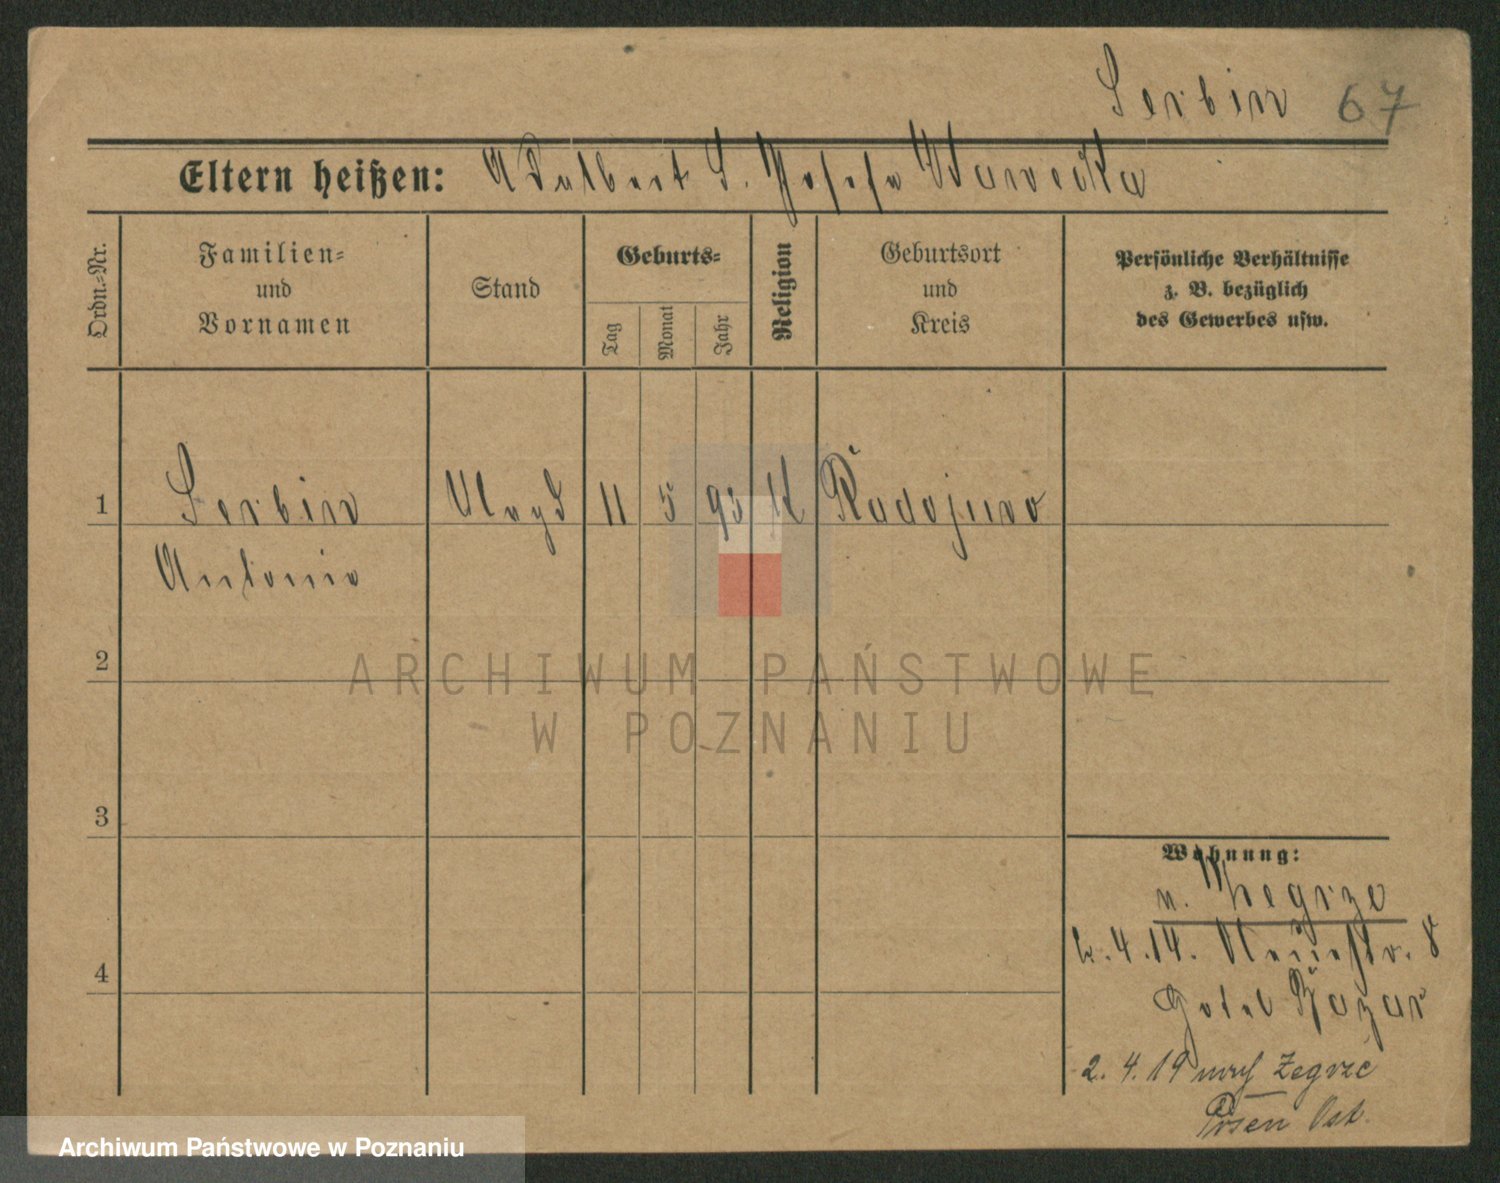 Serbin 67
Eltern heißen: Adalbert S. Josefa Wawecka
Ordn.-Nr.
Familien- und Vornamen
Stand
Geburts-
Tag
Monat
Jahr
Religion
Geburtsort und Kreis
Persönliche Verhältnisse z. B. bezüglich des Gewerbes usw.
1 Serbin Magd 11 5 93 K Radojewo
Antonie
2
3
4
Wohnung:
n. Zegrze
4.14. Neuestr. 8
Hotel Bazar
2. 4. 19 nach Zegrze
Posen Ost.
ARCHIWUM PAŃSTWOWE
W POZNANIU
Archiwum Państwowe w Poznaniu